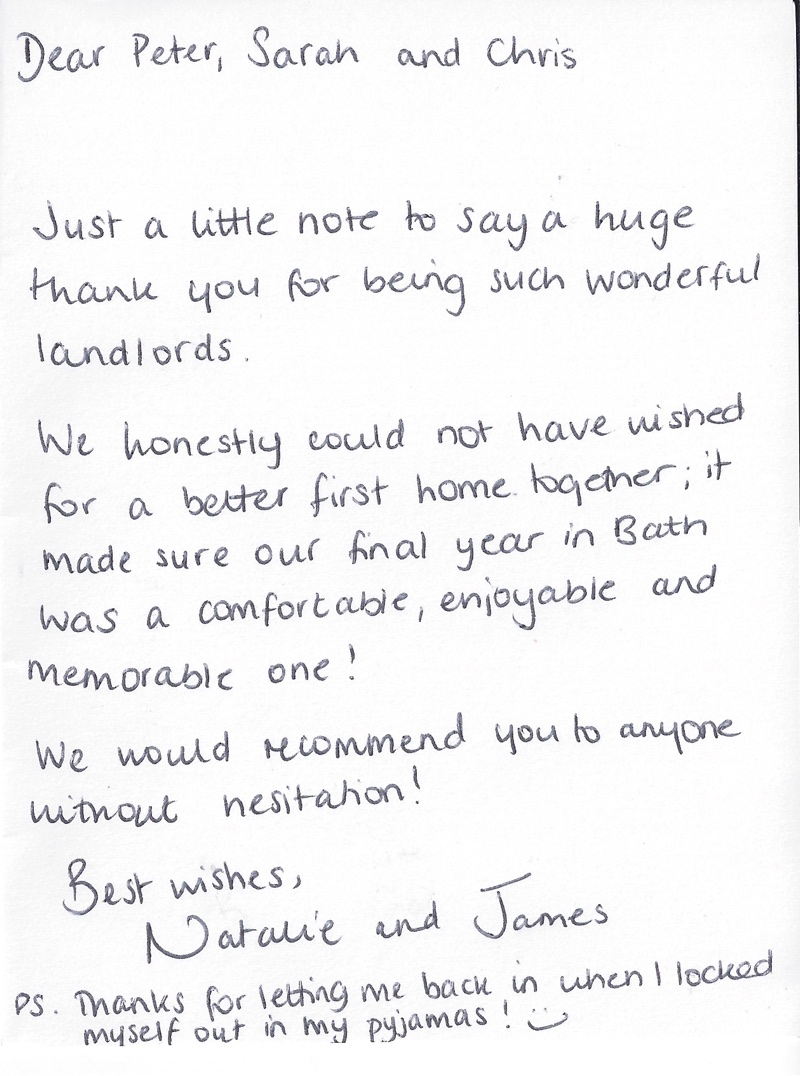 Dear Peter, Sarah and Chris
Just a little note to say a huge
thank you for being such wonderful
landlords.
We honestly could not have wished
for a better first home together; it
made sure our final year in Bath
was a comfortable, enjoyable and
memorable one!
We would recommend you to anyone
without hesitation!
Best wishes,
Natalie and James
PS. Thanks for letting me back in when I locked
myself out in my pyjamas! :)